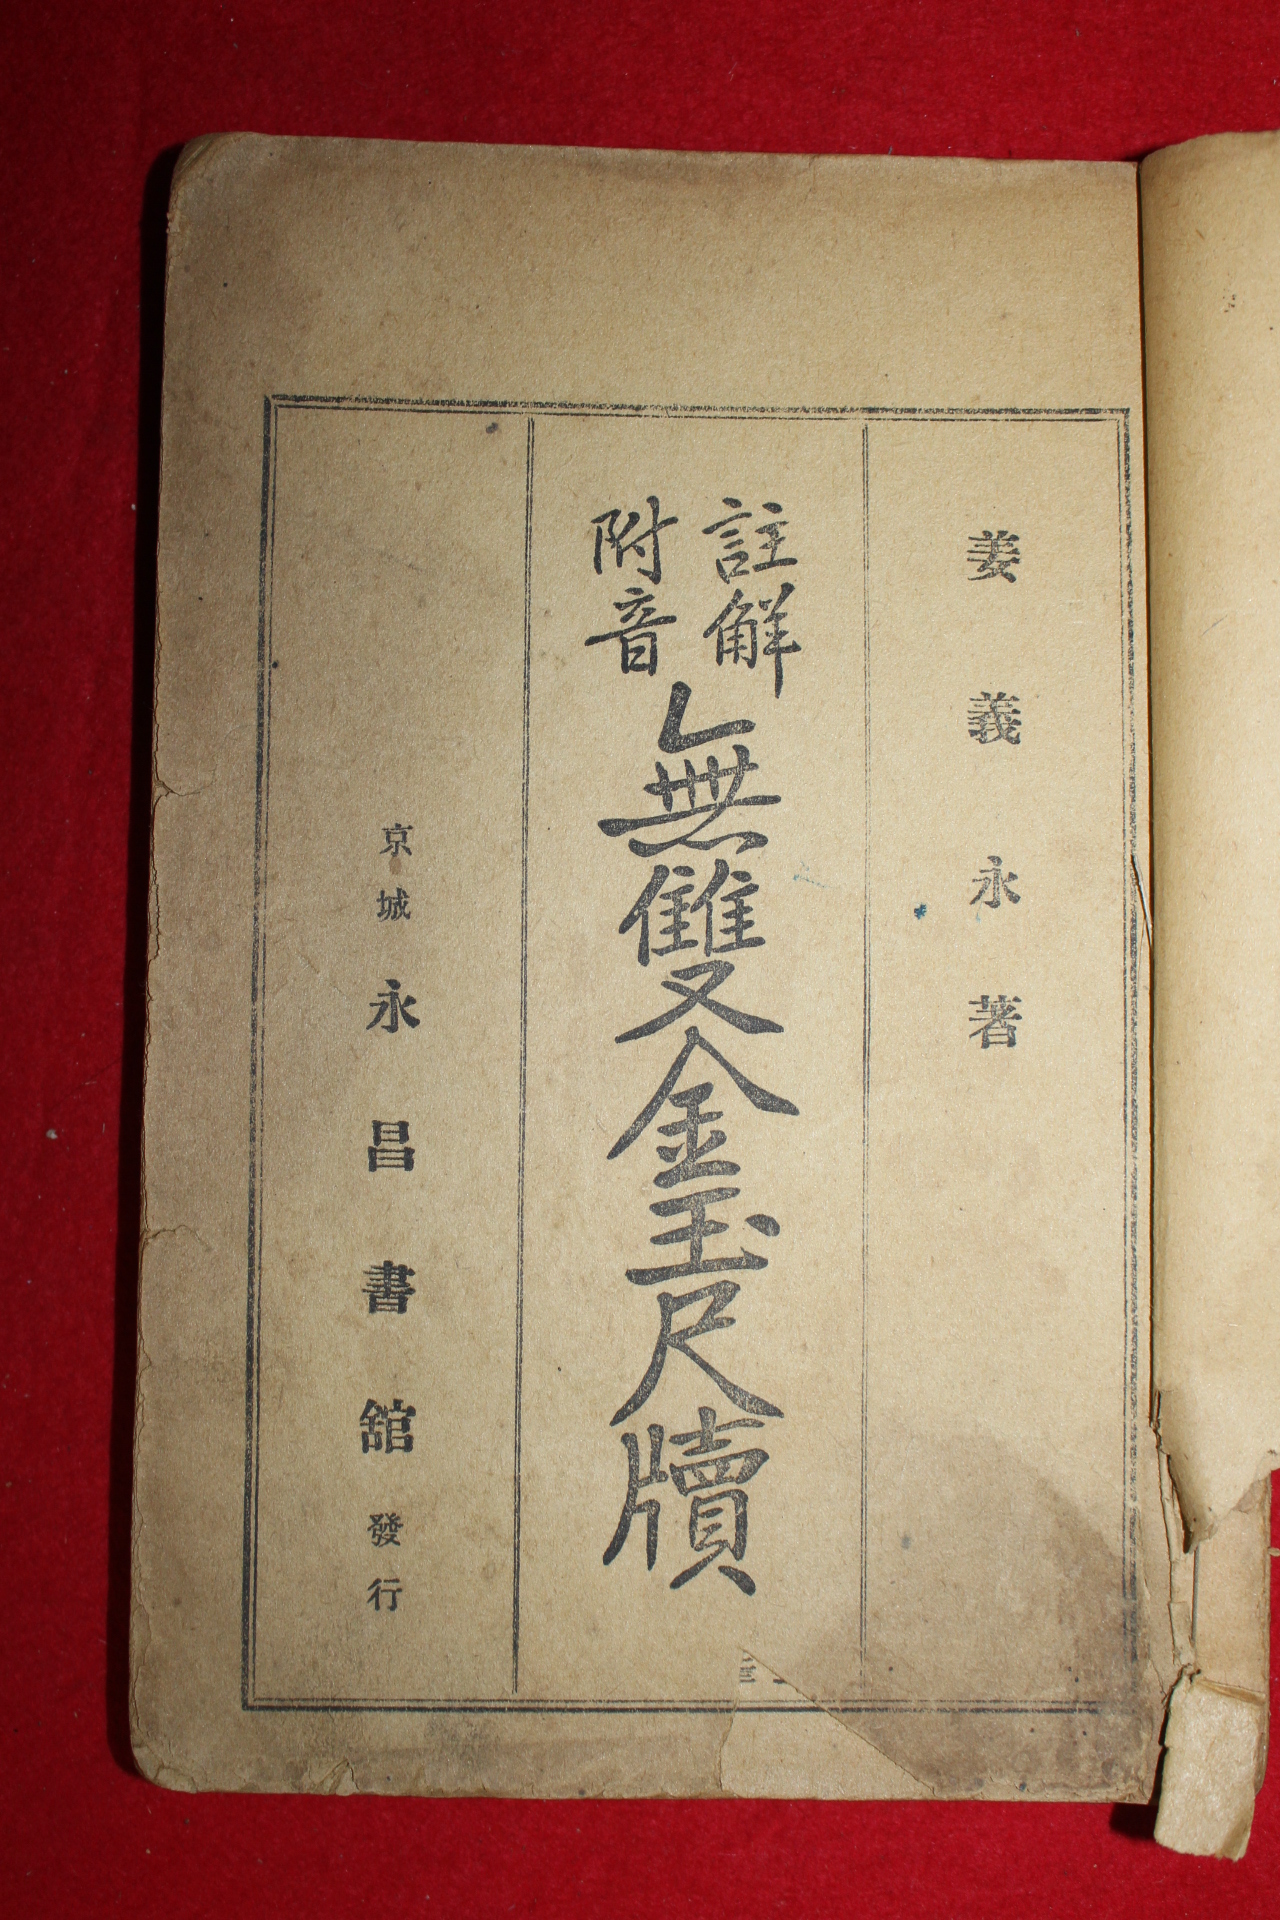 姜義永著
註解
附音
無雙金玉尺牘
京城永昌書舘發行